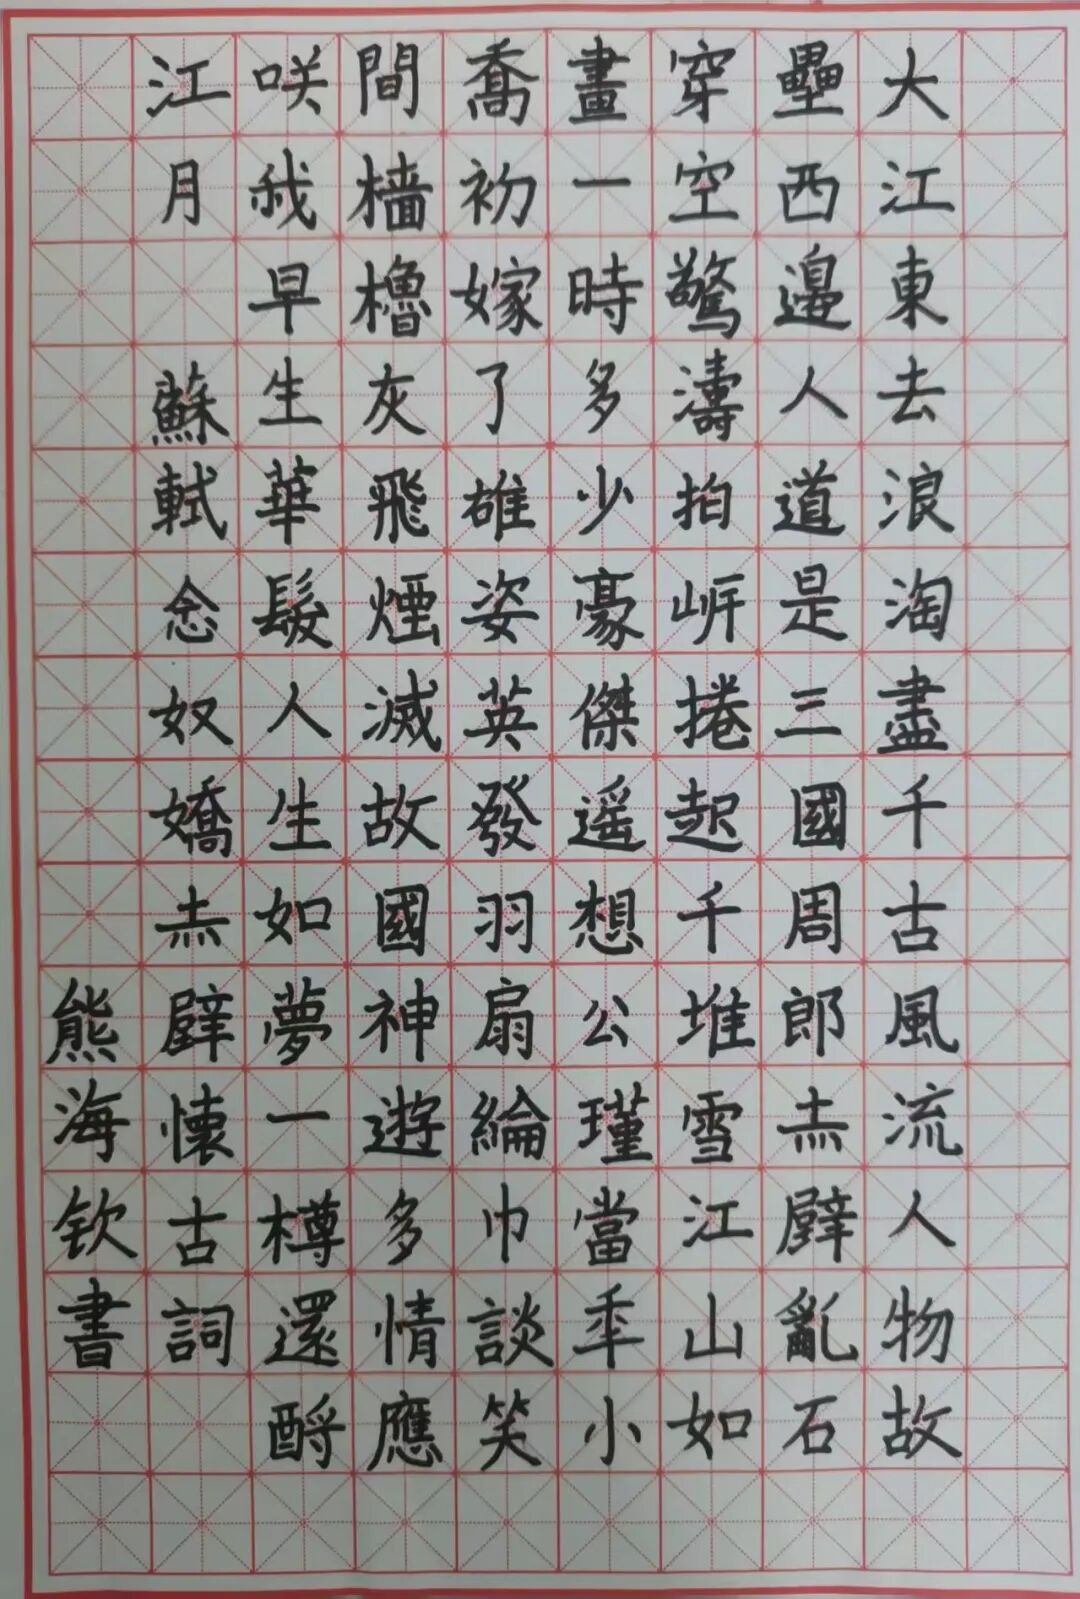 大江東去浪淘盡千古風流人物故
壘西邊人道是三國周郎赤壁亂石
穿空驚濤拍岍捲起千堆雪江山如
畫一時多少豪傑遥想公瑾當年小
喬初嫁了雄姿英發羽扇綸巾談笑
間檣櫓灰飛煙滅故國神遊多情應
咲我早生華髮人生如夢一樽還酹
江月
蘇軾念奴嬌赤壁懷古詞
熊海钦書